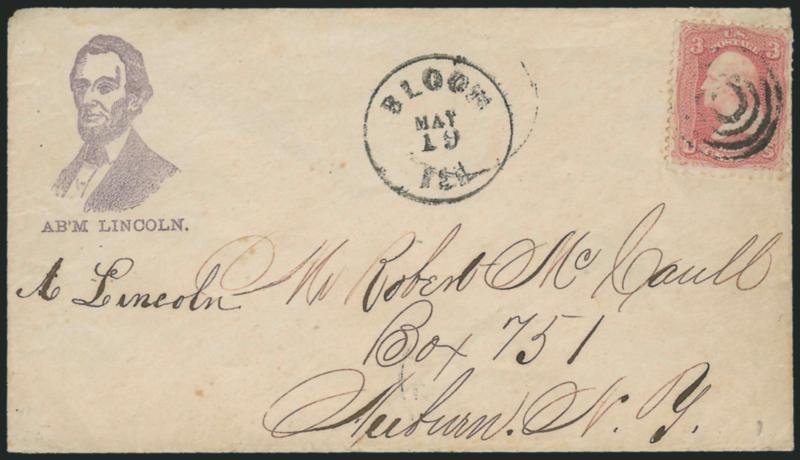 3 3
U.S.
POSTAGE
BLOOM
MAY
19
AB'M LINCOLN.
A Lincoln
Mr Robert McCaull
Box 751
Auburn. N. Y.